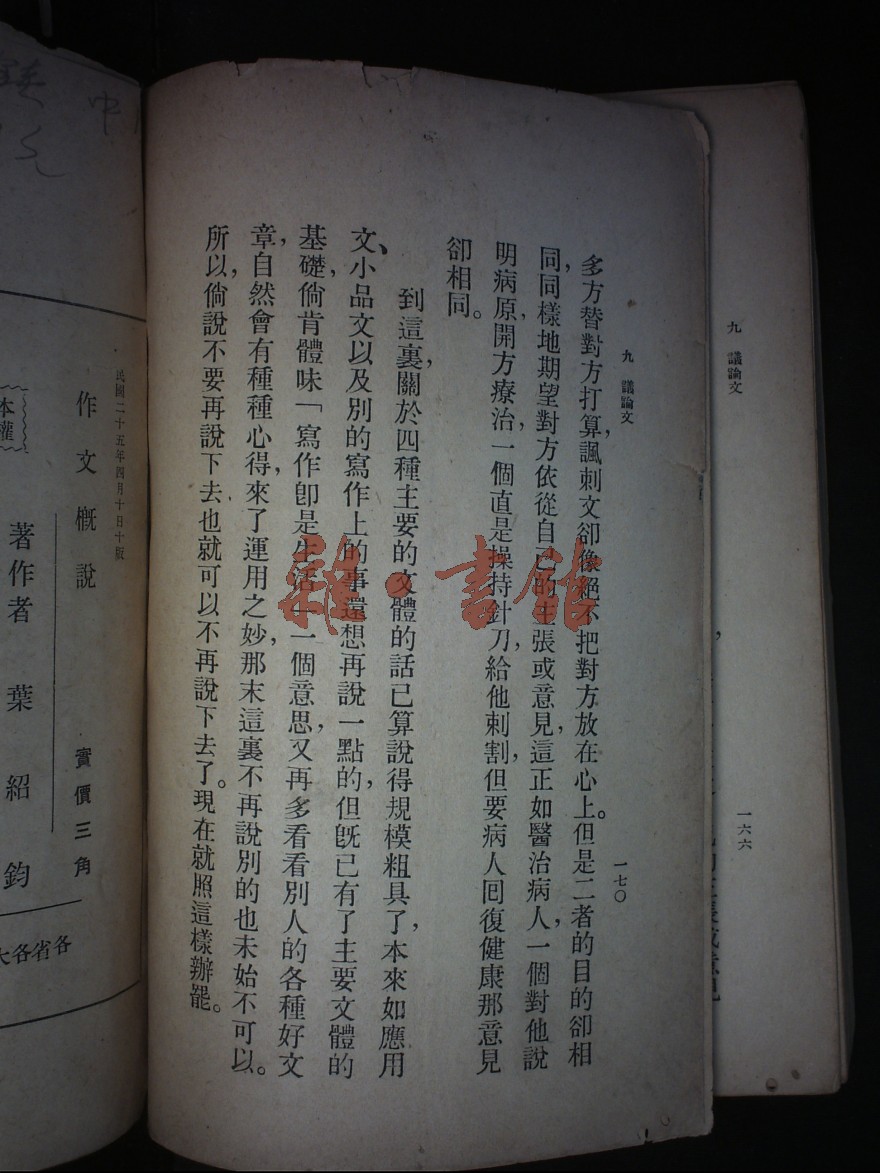 九 議論文
一六六
九 議論文
一七〇
多方替對方打算，諷刺文卻像絕不把對方放在心上。但是二者的目的卻相
同，同樣地期望對方依從自己的主張或意見，這正如醫治病人，一個對他說
明病原，開方療治，一個直是操持針刀，給他刺割，但要病人囘復健康那意見
卻相同。
到這裏，關於四種主要的文體的話已算說得規模粗具了，本來如應用
文、小品文以及別的寫作上的事還想再說一點的，但旣已有了主要文體的
基礎，倘肯體味「寫作卽是生活」一個意思，又再多看看別人的各種好文
章，自然會有種種心得，來了運用之妙，那末這裏不再說別的也未始不可以。
所以，倘說不要再說下去也就可以不再說下去了。現在就照這樣辦罷。
雜·書館
民國二十五年四月十日十版
作文概說
實價三角
著作者 葉紹鈞
各省各大